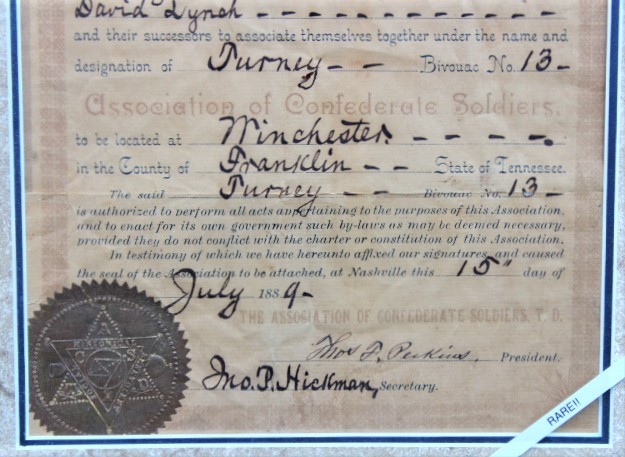 David Lynch
and their successors to associate themselves together under the name and
designation of Turney Bivouac No. 13
Association of Confederate Soldiers.
to be located at Winchester.
in the County of Franklin State of Tennessee.
The said Turney Bivouac No. 13
is authorized to perform all acts appertaining to the purposes of this Association,
and to enact for its own government such by-laws as may be deemed necessary,
provided they do not conflict with the charter or constitution of this Association.
In testimony of which we have hereunto affixed our signatures, and caused
the seal of the Association to be attached, at Nashville this 15" day of
July 1889
THE ASSOCIATION OF CONFEDERATE SOLDIERS, T. D.
Thos F. Perkins, President.
Jno. P. Hickman, Secretary.
HISTORICAL
RARE!!